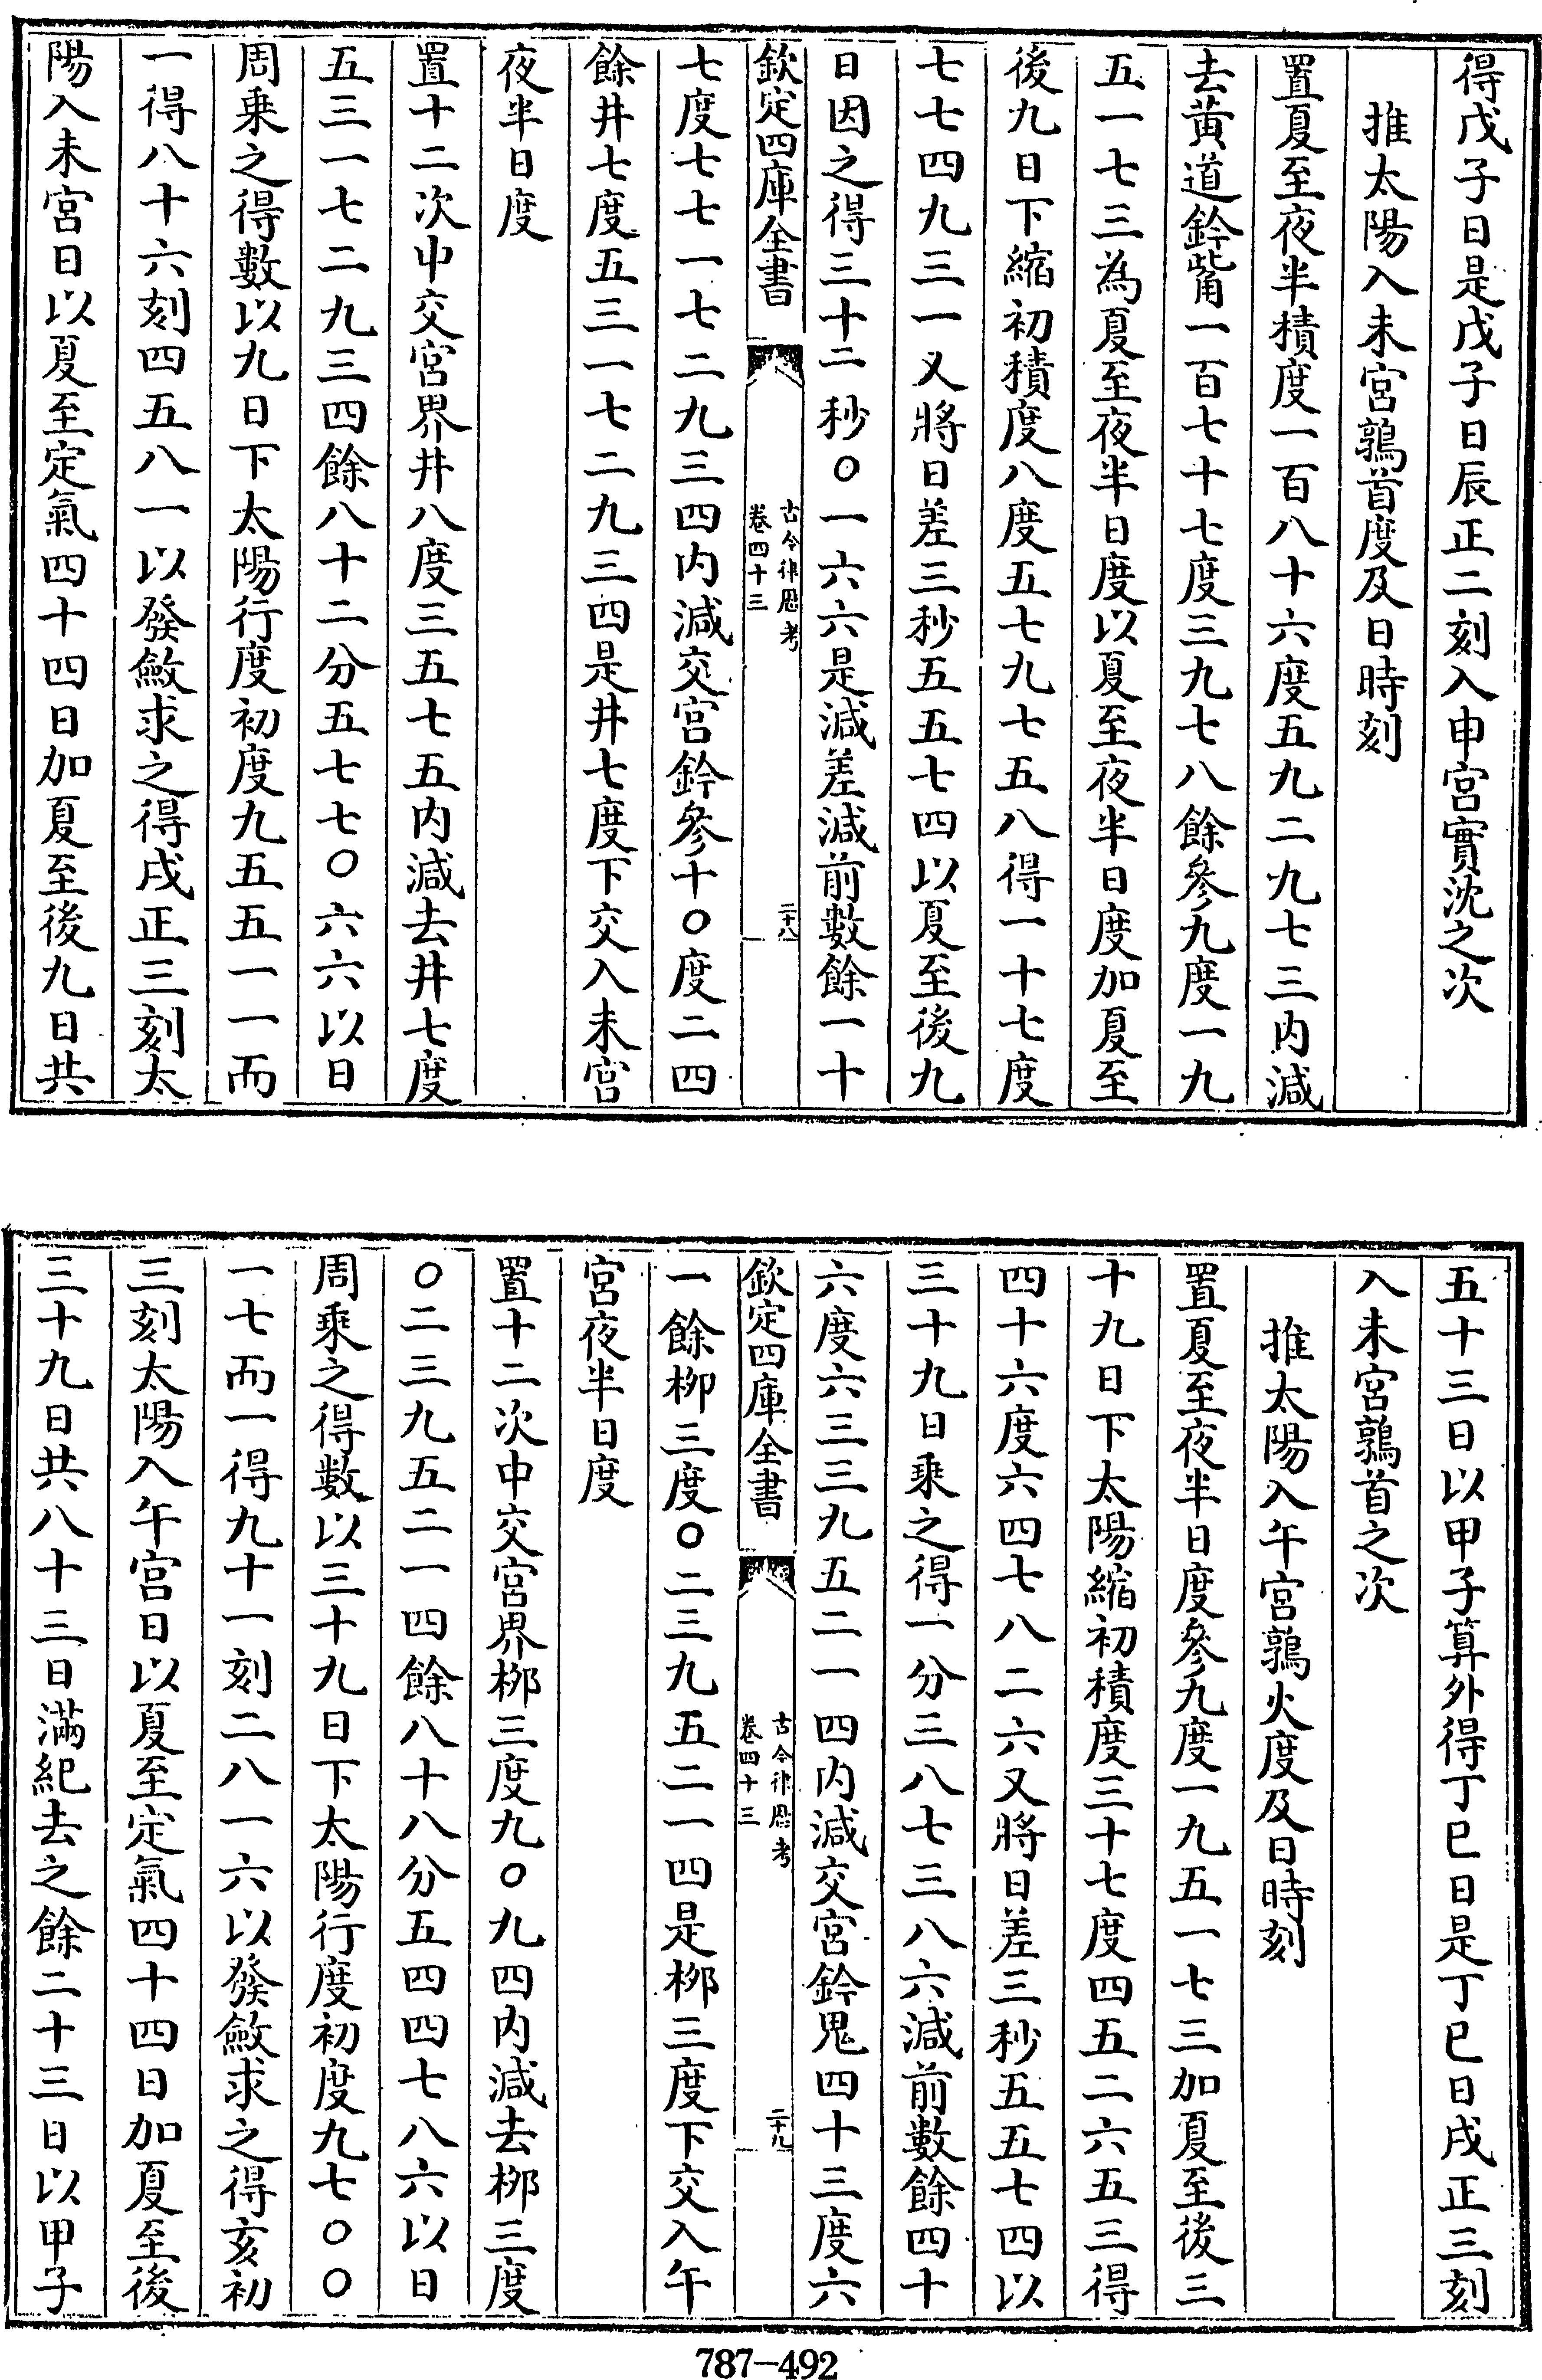 得戊子日是戊子日辰正二刻入申宮實沈之次
推太陽入未宮鶉首度及日時刻
置夏至夜半積度一百八十六度五九二九七三内減
去黄道鈐觜一百七十七度三九七八餘參九度一九
五一七三為夏至夜半日度以夏至夜半日度加夏至
後九日下縮初積度八度五七九七五八得一十七度
七七四九三一又將日差三秒五五七四以夏至後九
日因之得三十二秒〇一六六是減差減前數餘一十
欽定四庫全書
古今律厯考
卷四十三
二十八
七度七七一七二九三四内減交宮鈐參十〇度二四
餘井七度五三一七二九三四是井七度下交入未宮
夜半日度
置十二次中交宮界井八度三五七五内減去井七度
五三一七二九三四餘八十二分五七七〇六六以日
周乗之得數以九日下太陽行度初度九五五一一而
一得八十六刻四五八一以發斂求之得戌正三刻太
陽入未宮日以夏至定氣四十四日加夏至後九日共
五十三日以甲子算外得丁巳日是丁巳日戌正三刻
入未宮鶉首之次
推太陽入午宮鶉火度及日時刻
置夏至夜半日度參九度一九五一七三加夏至後三
十九日下太陽縮初積度三十七度四五二六五三得
四十六度六四七八二六又將日差三秒五五七四以
三十九日乗之得一分三八七三八六減前數餘四十
六度六三三九五二一四内減交宮鈐鬼四十三度六
欽定四庫全書
古今律厯考
卷四十三
二十九
一餘栁三度〇二三九五二一四是栁三度下交入午
宮夜半日度
置十二次中交宮界栁三度九〇九四内減去栁三度
〇二三九五二一四餘八十八分五四四七八六以日
周乗之得數以三十九日下太陽行度初度九七〇〇
一七而一得九十一刻二八一六以發斂求之得亥初
三刻太陽入午宮日以夏至定氣四十四日加夏至後
三十九日共八十三日滿紀去之餘二十三日以甲子
787-492